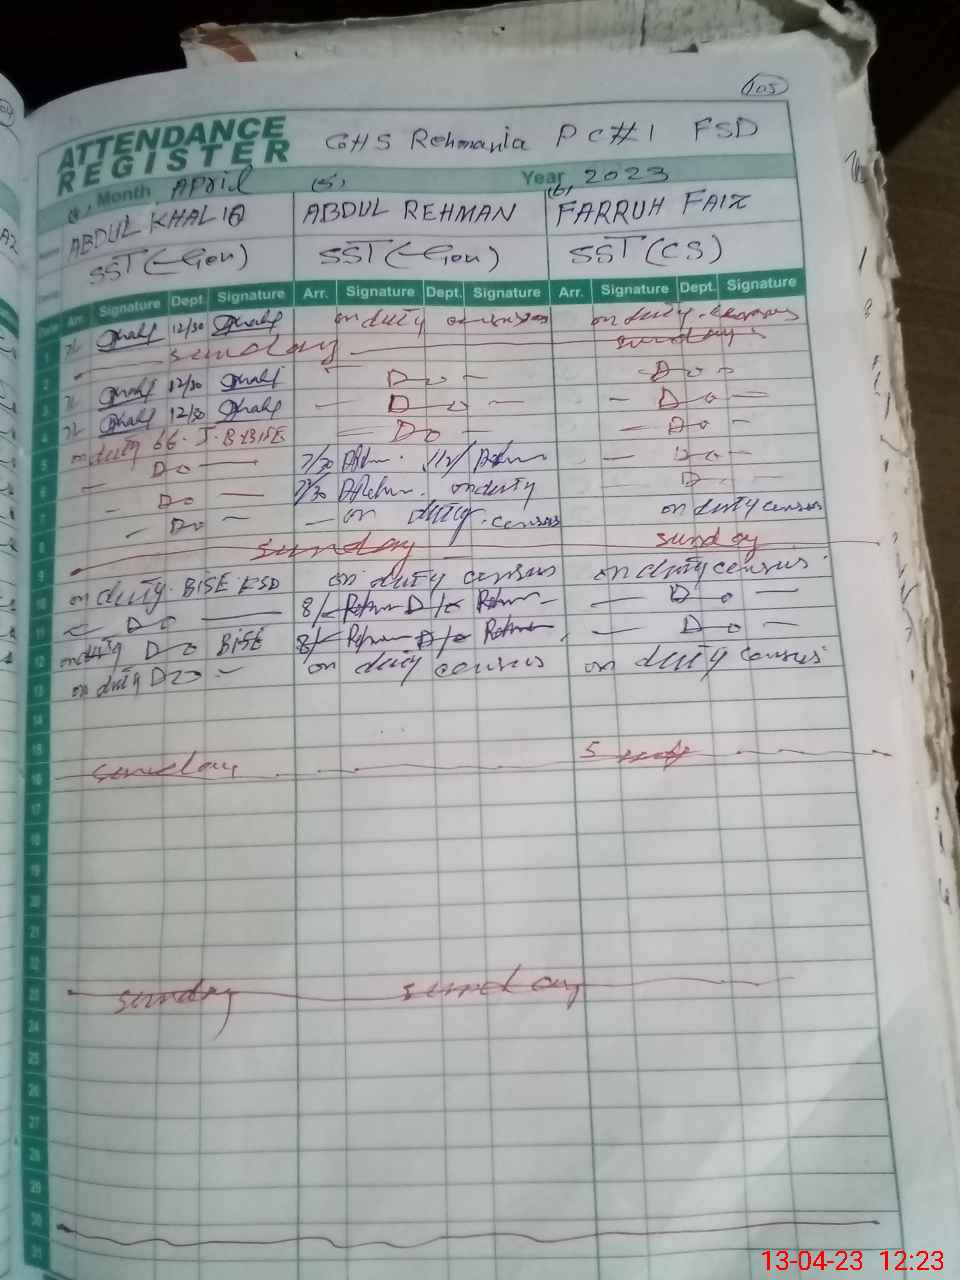 105
ATTENDANCE REGISTER GHS Rehmania P C#1 FSD
Month April (5) Year 2023 (6)
ABDUL KHALIQ ABDUL REHMAN FARRUH FAIZ
SST (Gen) SST (Gen) SST (CS)
Date Arr. Signature Dept. Signature Arr. Signature Dept. Signature Arr. Signature Dept. Signature
1 12/30 on duty census on duty census
2 Sunday Sunday
3 12/30 — Do — — Do —
4 12/30 — Do — — Do —
5 on duty BISE — Do — — Do —
6 — Do — 7/30 — Do —
7 — Do — 7/30 on duty — Do —
8 — Do — — on duty census on duty census
9 Sunday Sunday
10 on duty BISE FSD on duty census on duty census
11 — Do — 8/ — Do —
12 on duty Do BISE 8/ — Do —
13 on duty Do — on duty census on duty census
14
15
16 Sunday
17
18
19
20
21
22
23 Sunday Sunday
24
25
26
27
28
29
30
31
13-04-23 12:23